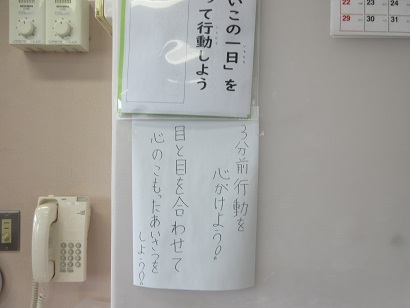 いこの一日」を
って行動しよう
3分前行動を
心がけよう。
目と目を合わせて
心のこもったあいさつを
しよう。
22 23 24
29 30 31